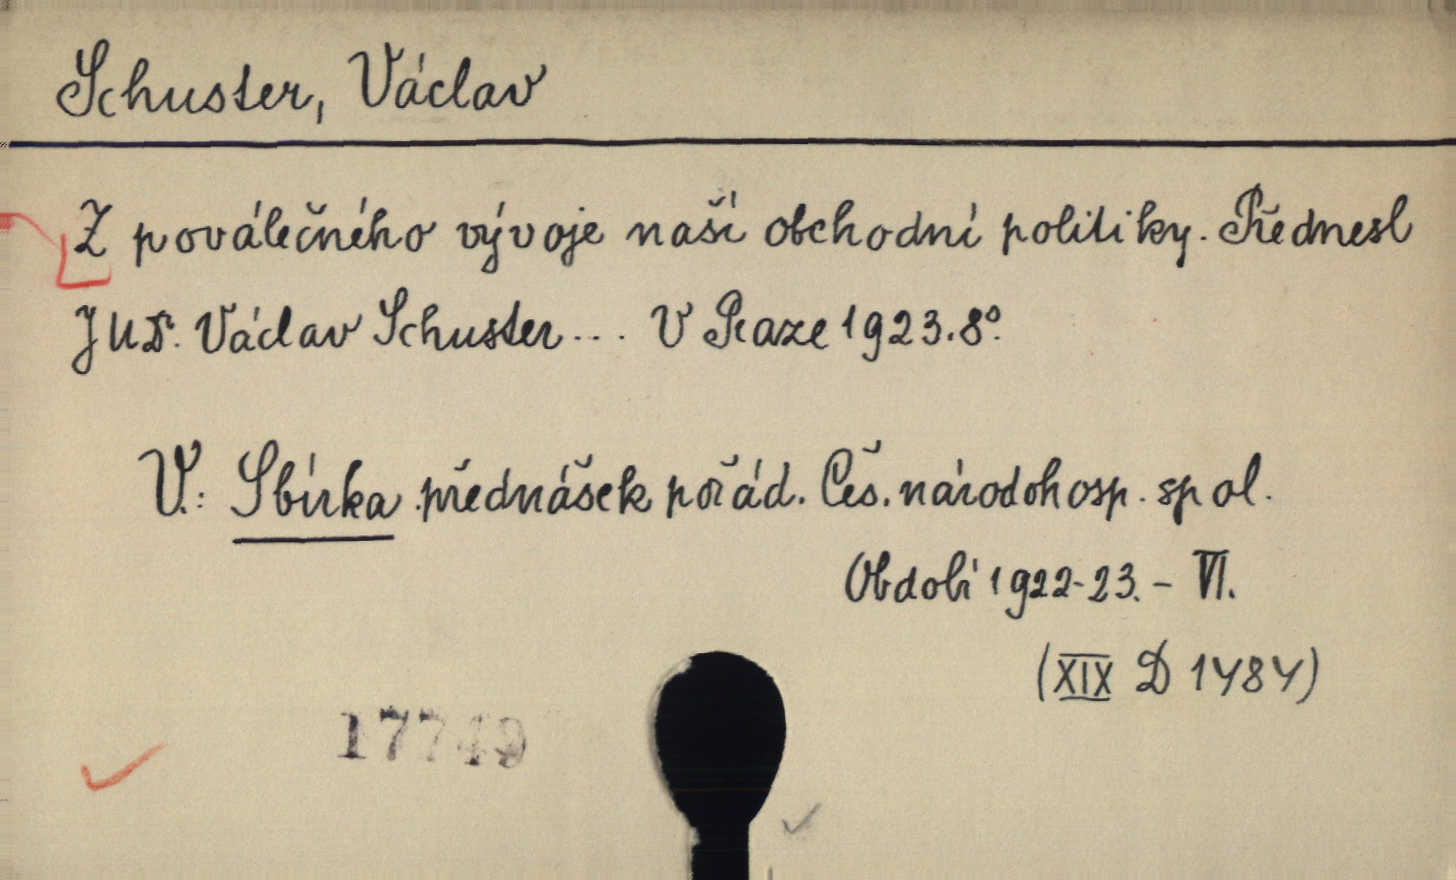 Schuster, Václav
Z poválečného vývoje naší obchodní politiky. Přednesl
JUDr. Václav Schuster... V Praze 1923. 8°.
V.: Sbírka přednášek pořád. Čes. národohosp. spol.
Období 1922-23. - VI.
(XIX D 1484)
17749